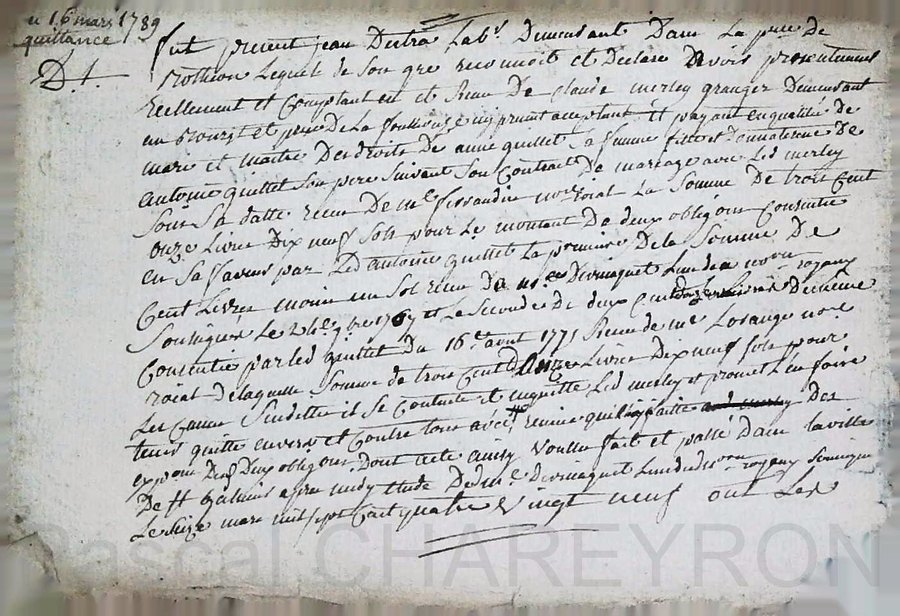 du 16 mars 1789
quittance
D.t
fut present jean Dutra lab.r Demeurant Dans La psse de
Rothion Lequel de Son gre reconnoit et Declare Avoir presentement
reellement et Comptant eu et Receu De claude merley granger Demeurant
au Bourg et psse De La fouillouse icy present acceptant et payant en qualité de
mary et maitre Des droits De anne quittet Sa femme fille et Donnataire De
antoine quittet Son pere Suivant Son Contrat De mariage avec Led merley
Sous Sa datte receu De me no.re roial La Somme De trois Cent
onze Livres Dix neuf Sols pour Le montant De deux obligõns Consentie
en Sa faveur par Led antoine quittet La premiere De la Somme De
Cent Livres moins un Sol receu De me Devinaguet L'un des no.res royaux
Soussignes Le 24e 9bre 1767 et La Seconde De deux Cent Livres De meme
Consentie par led quittet Du 16e aout 1771 Receu de me Lorange no.re
roial De laquelle Somme de trois Cent Onze Livres Dix neuf Sols pour
Les Causes Susdittes il Se Contente et en quitte Led merley et promet L'en faire
tenir quitte envers et Contre tous avec remise qu'il a faite Des
expons Des Deux obligõns Dont acte ainsy Voullu fait et passé Dans la ville
De St Galmier apres midy etude De me Devinaguet L'un des no.res royaux Soussignes
Le Seize mars mil sept Cent quatre Vingt neuf ont Les
Pascal CHAREYRON